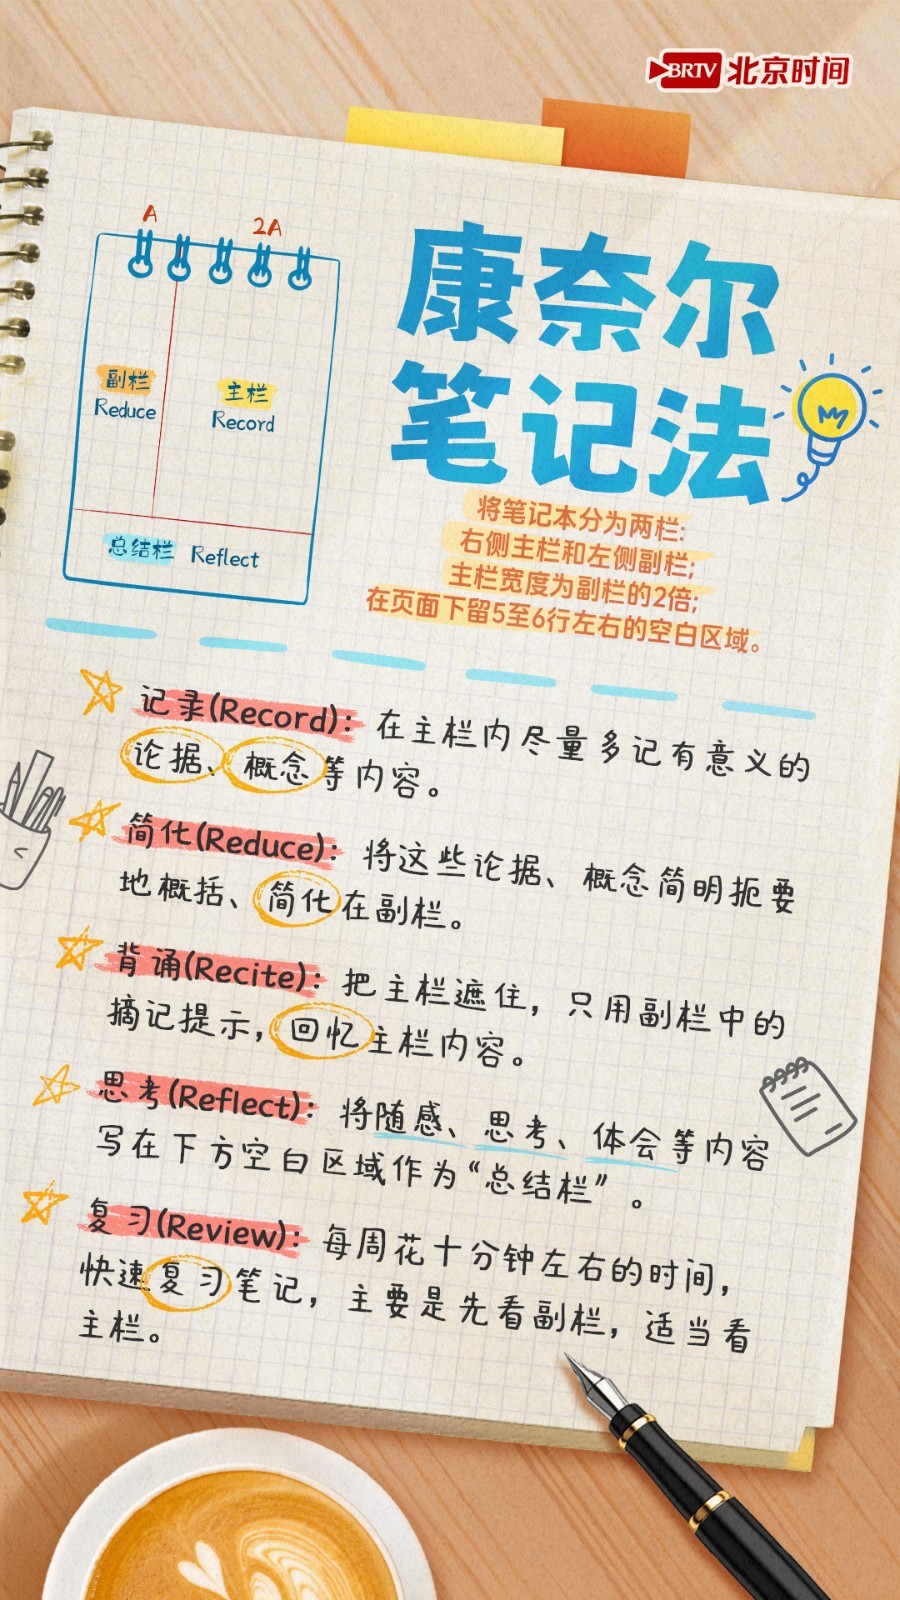 BRTV 北京时间
A
2A
副栏
Reduce
主栏
Record
总结栏 Reflect
康奈尔
笔记法
将笔记本分为两栏:
右侧主栏和左侧副栏;
主栏宽度为副栏的2倍;
在页面下留5至6行左右的空白区域。
记录(Record)：在主栏内尽量多记有意义的
论据、概念等内容。
简化(Reduce)：将这些论据、概念简明扼要
地概括、简化在副栏。
背诵(Recite)：把主栏遮住，只用副栏中的
摘记提示，回忆主栏内容。
思考(Reflect)：将随感、思考、体会等内容
写在下方空白区域作为“总结栏”。
复习(Review)：每周花十分钟左右的时间，
快速复习笔记，主要是先看副栏，适当看
主栏。